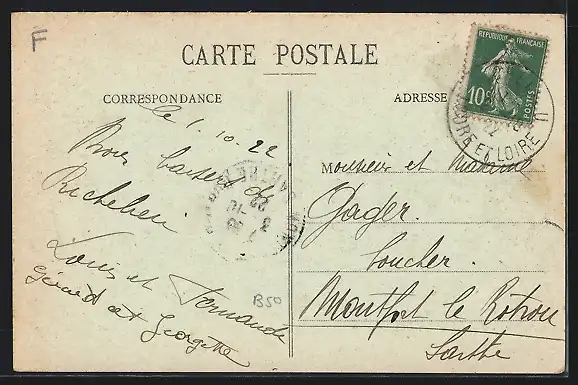 F
CARTE POSTALE
CORRESPONDANCE
ADRESSE
RÉPUBLIQUE FRANÇAISE
10c
POSTES
INDRE ET LOIRE
le 1. 10. 22
Bons baisers de
Richelieu.
Louis et Fernande
Gérard et Georgette
B50
Monsieur et Madame
Gager.
Boucher.
Montfort le Rotrou
Sarthe